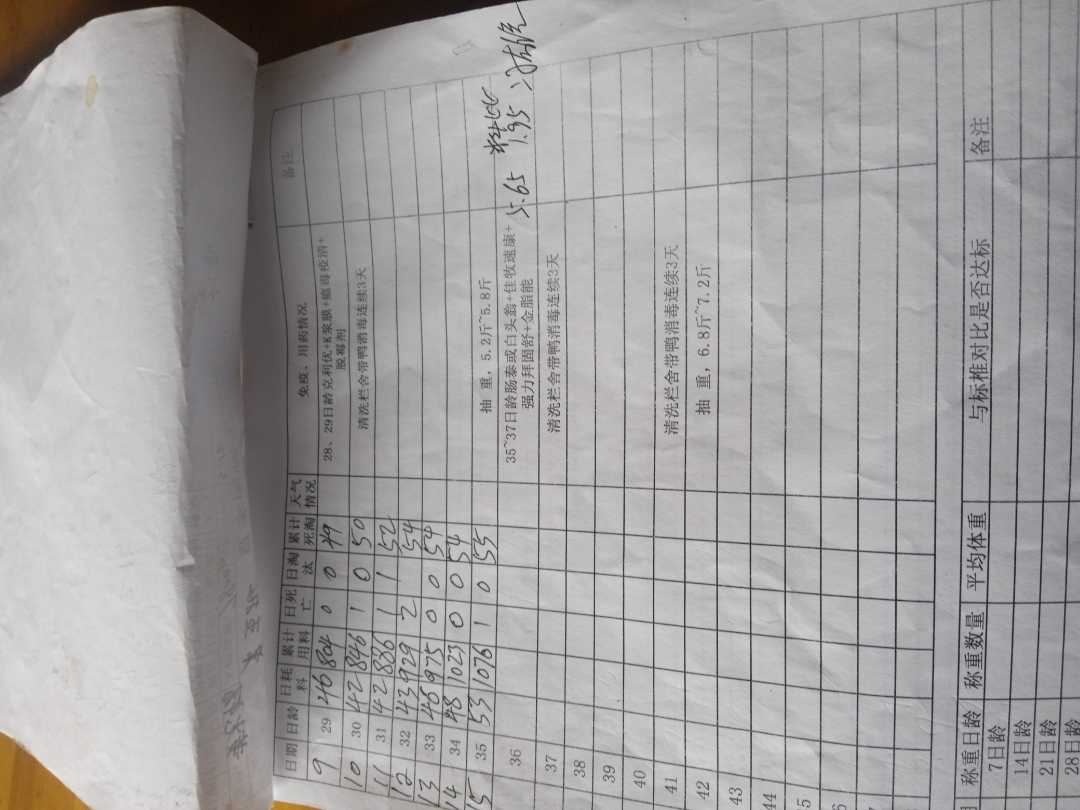 日期 日龄 日耗料 累计用料 日死亡 日淘汰 累计死淘 天气情况 免疫、用药情况 备注
9 29 46 804 0 0 49 28、29日龄克利优+K浆膜+瘟毒疫清+脱霉剂
10 30 42 846 1 0 50 清洗栏舍带鸭消毒连续3天
11 31 42 886 1 1 52
12 32 43 929 2 54
13 33 46 975 0 0 54
14 34 48 1023 0 0 54
15 35 53 1076 1 0 55 抽 重，5.2斤~5.8斤
36 35~37日龄肠泰或白头翁+佳牧速康+强力拜固舒+金脂能 5.65 料比 1.95
37 清洗栏舍带鸭消毒连续3天
38
39
40
41 清洗栏舍带鸭消毒连续3天
42 抽 重，6.8斤~7.2斤
43
44
5
6
称重日龄 称重数量 平均体重 与标准对比是否达标 备注
7日龄
14日龄
21日龄
28日龄